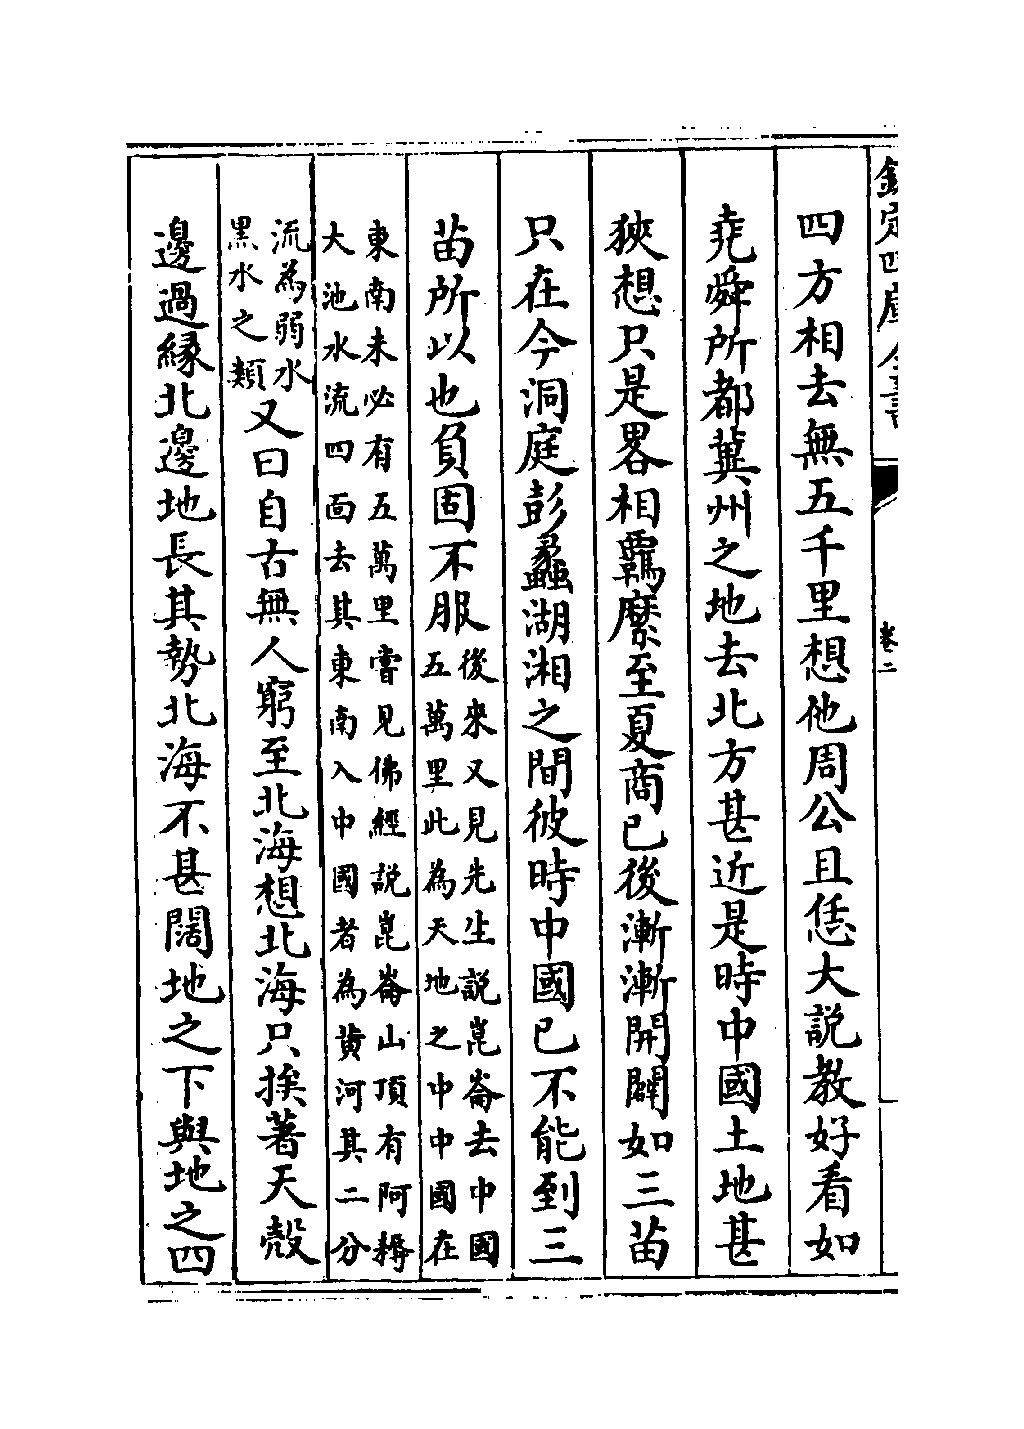 欽定四庫全書
卷二
四方相去無五千里想他周公且恁大説教好看如
堯舜所都冀州之地去北方甚近是時中國土地甚
狹想只是畧相羈縻至夏商已後漸漸開闢如三苗
只在今洞庭彭蠡湖湘之間彼時中國已不能到三
苗所以也負固不服
後來又見先生説崑崙去中國
五萬里此為天地之中中國在
東南未必有五萬里嘗見佛經説崑崙山頂有阿耨
大池水流四面去其東南入中國者為黄河其二分
流為弱水
黒水之類
又曰自古無人窮至北海想北海只挨著天殻
邊過緣北邊地長其勢北海不甚闊地之下與地之四